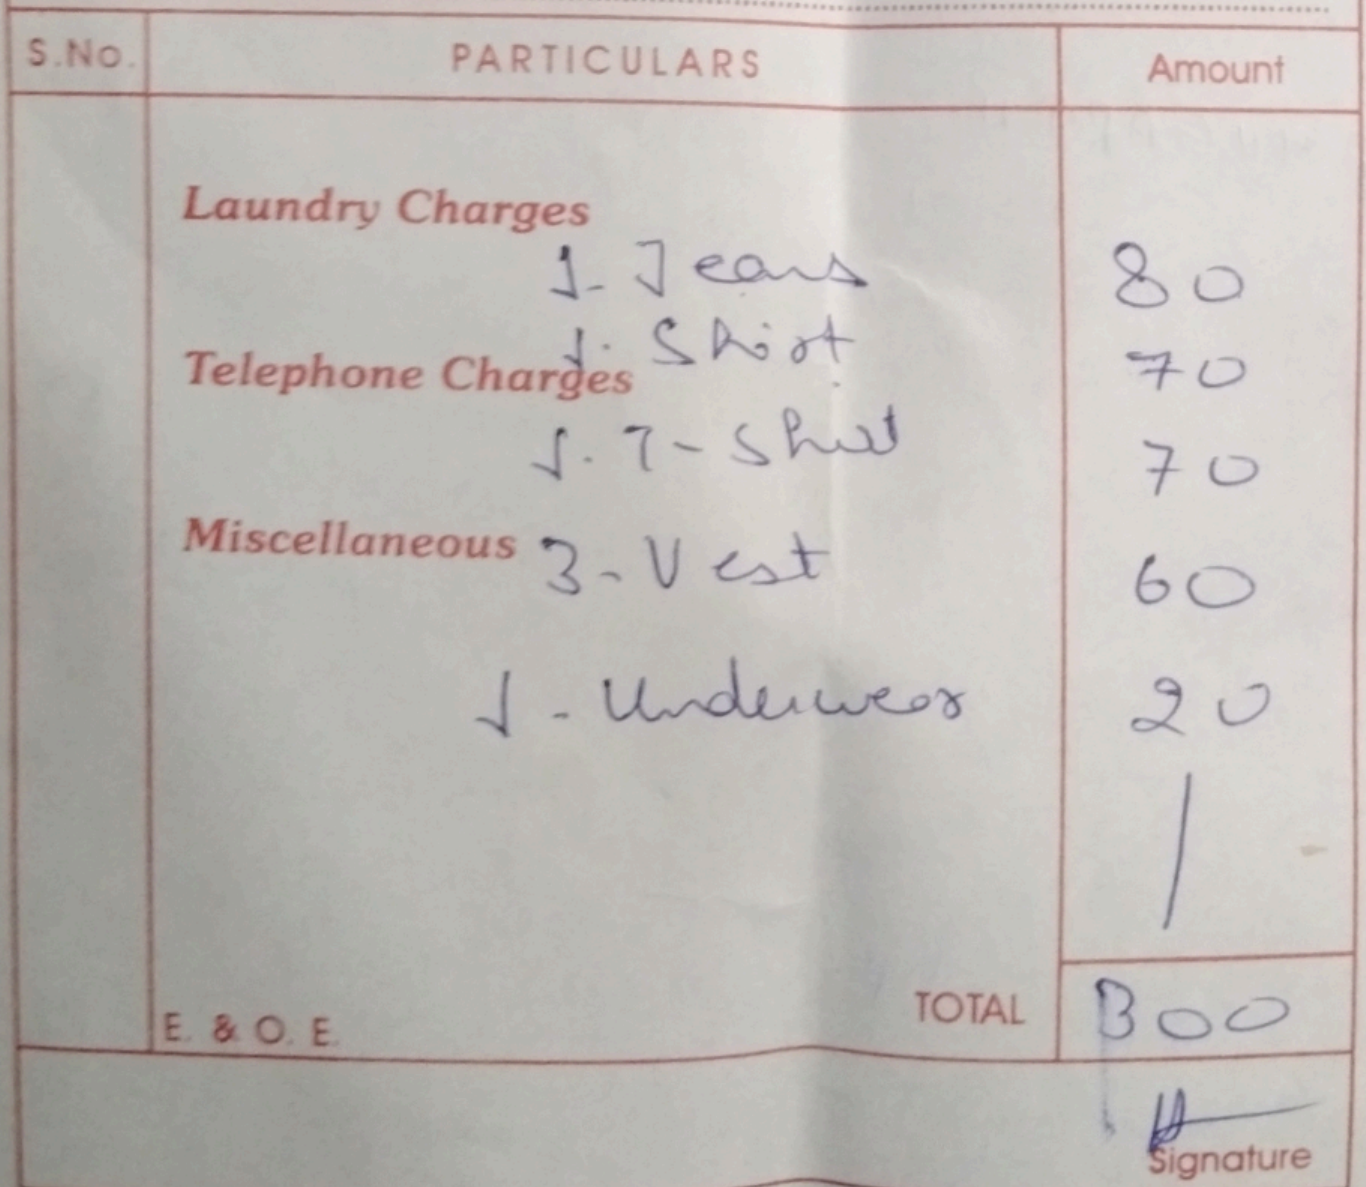 S.No. PARTICULARS Amount
Laundry Charges
1- Jeans 80
1. Shirt 70
Telephone Charges
1. T-Shirt 70
Miscellaneous 3-Vest 60
1 - Underwear 20
TOTAL 300
E. & O. E.
Signature